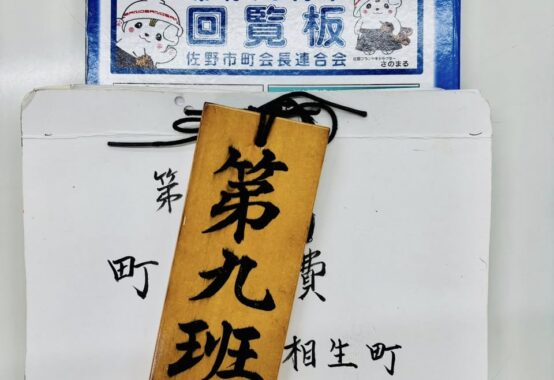 回覧板
佐野市町会長連合会
さのまる
第九班
第
町 費
相生町